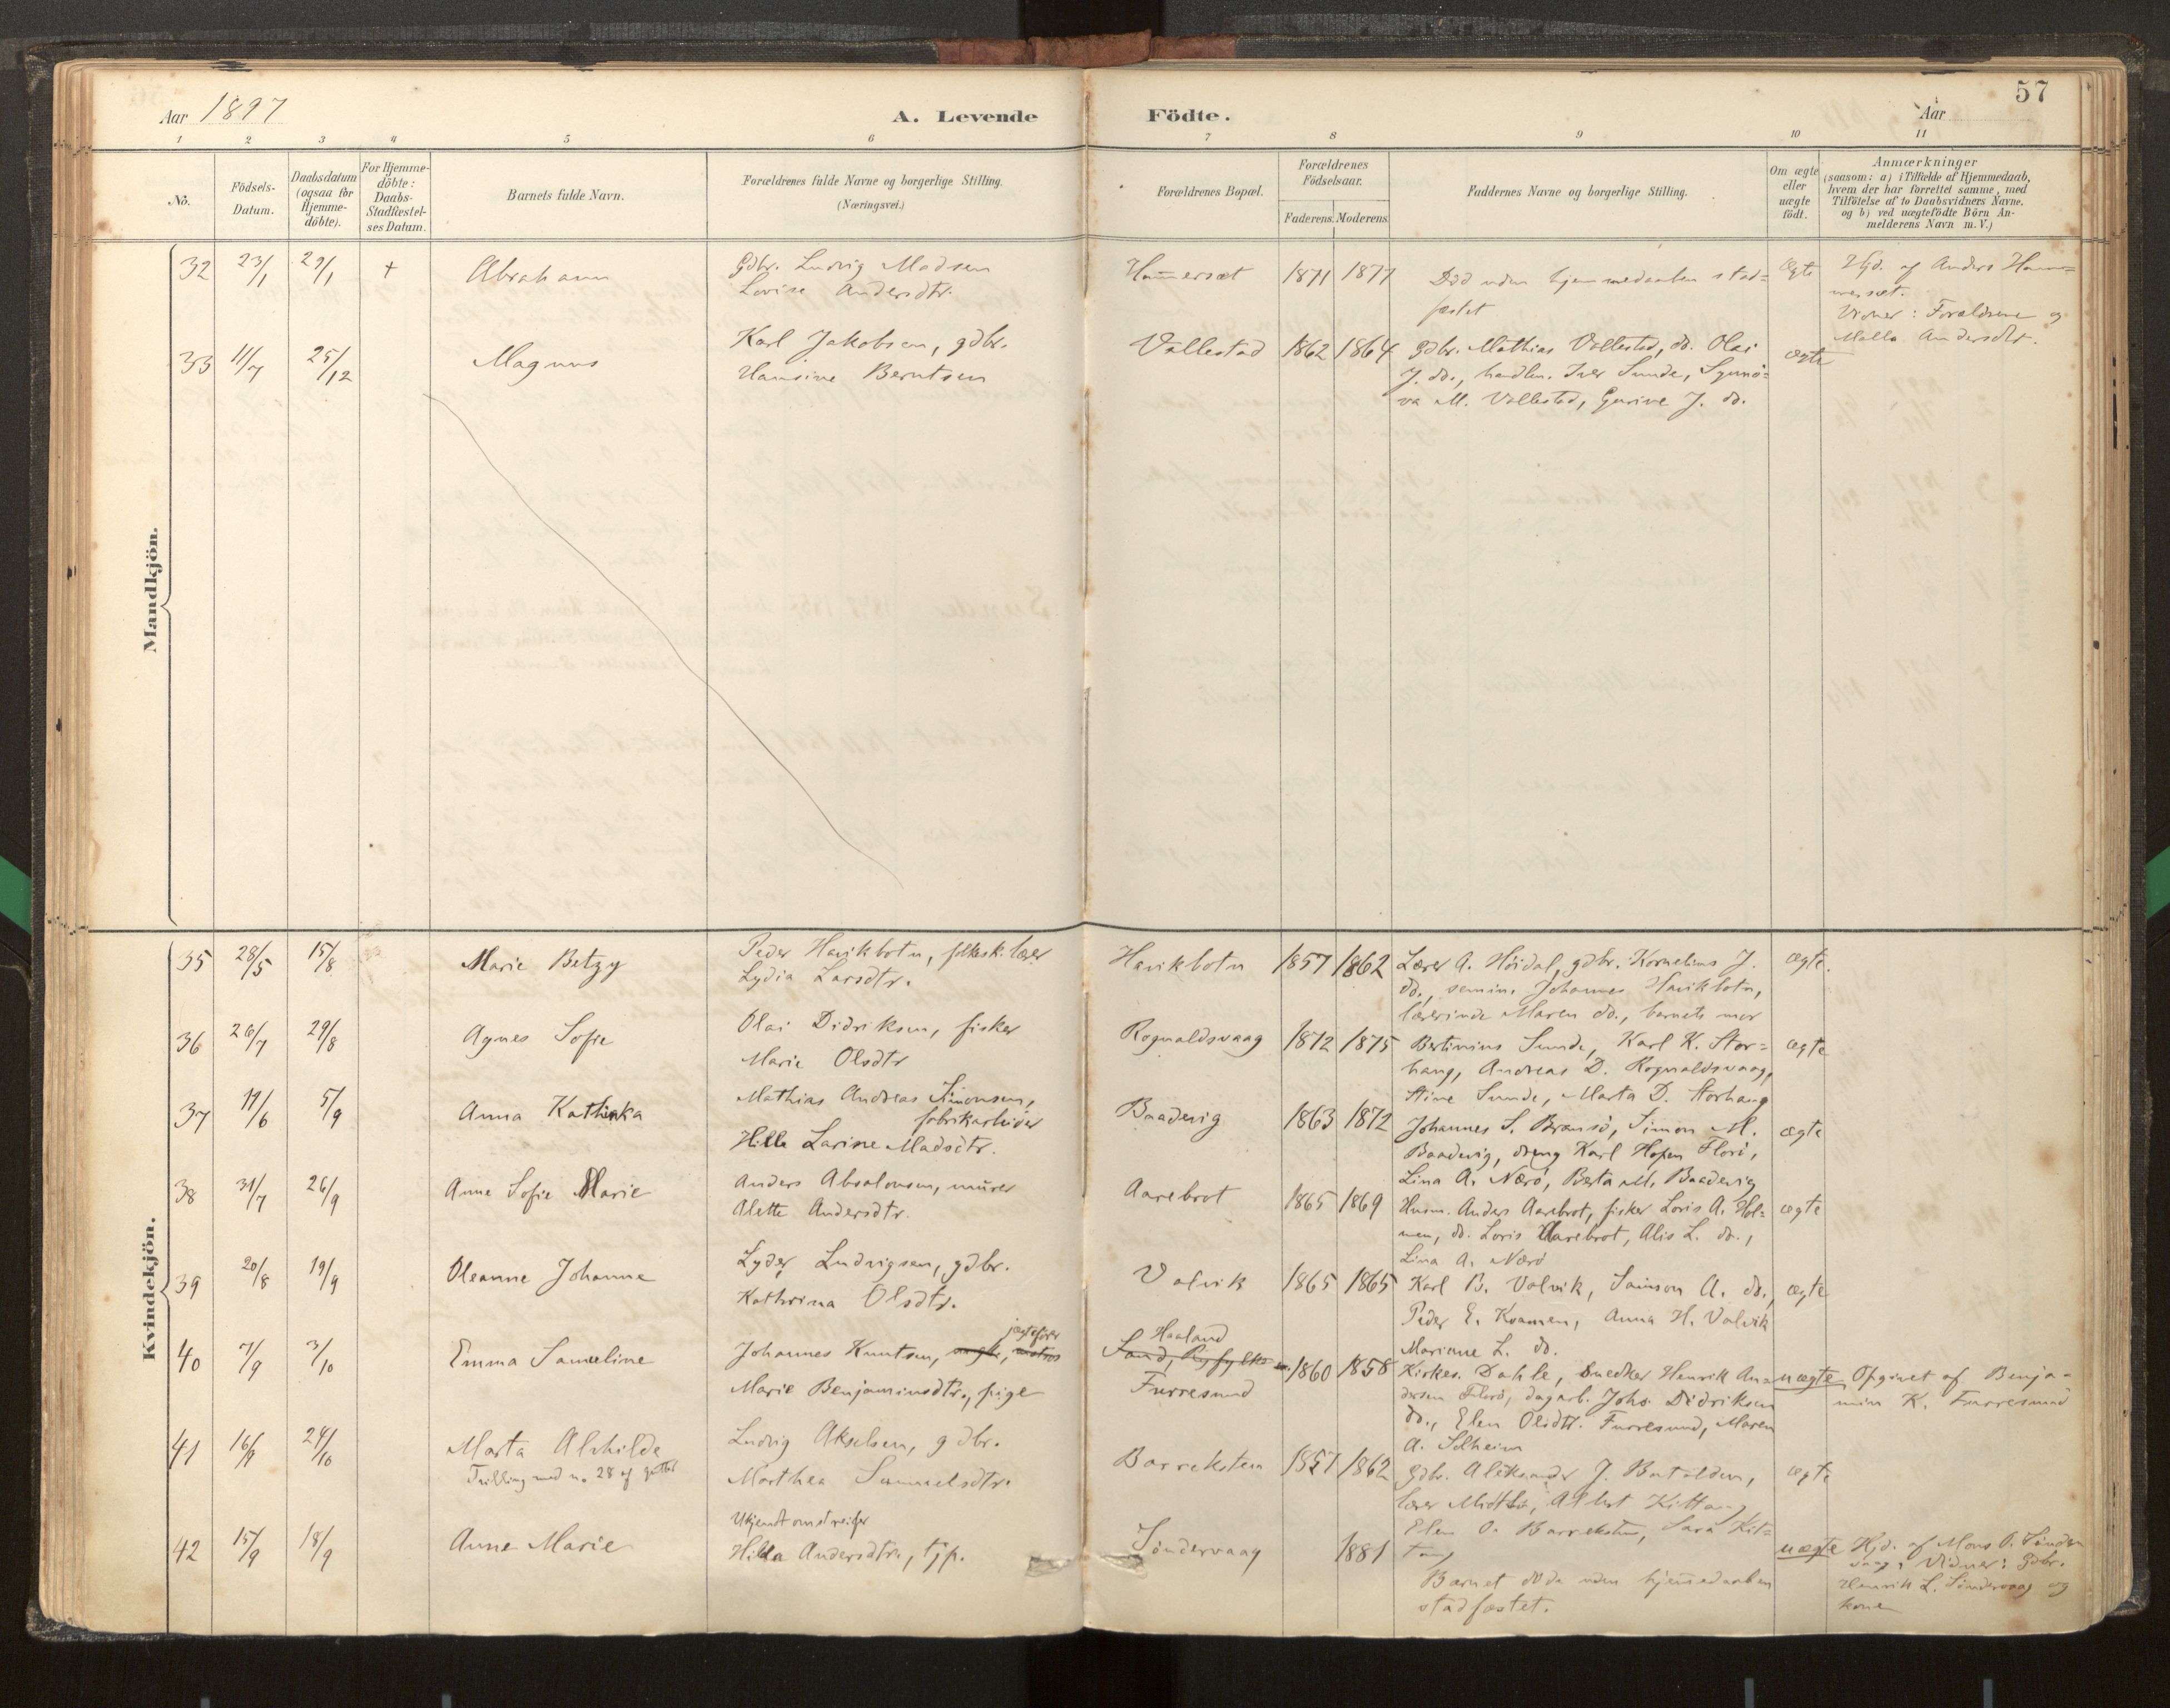 57
Aar 1897
A. Levende Födte.
Aar
1 2 3 4 5 6 7 8 9 10 11
No.
Födsels-
Datum.
Daabsdatum
(ogsaa for
Hjemme-
döbte).
For Hjemme-
döbte:
Daabs-
Stadfæstel-
ses Datum.
Barnets fulde Navn.
Forældrenes fulde Navne og borgerlige Stilling.
(Næringsvei.)
Forældrenes Bopæl.
Forældrenes
Födselsaar.
Faderens. Moderens.
Faddernes Navne og borgerlige Stilling.
Om ægte
eller
uægte
födt.
Anmærkninger
(saasom: a) i Tilfælde af Hjemmedaab,
hvem der har forrettet samme, med
Tilföielse af to Daabsvidners Navne.
og b) ved uægtefödte Börn An-
melderens Navn m.V.)
Mandkjön.
32 23/1 29/1 + Abraham
Gdbr. Ludvig Madsen
Lovise Andersdtr.
Hammersæt 1871 1877
Död uden hjemmedaaben stad=
fæstet
ægte
Hjd. af Anders Ham=
mersæt.
Vidner: Forældrene og
Malla Andersdtr.
33 11/7 25/12 Magnus
Karl Jakobsen, gdbr.
Hansine Berntsen
Vallestad 1862 1864
Gdbr. Mathias Vallestad, do. Olai
J. do., handlm. Iver Sunde, Synnö=
va M. Vallestad, Gurine J. do.
ægte
Kvindekjön.
35 28/5 15/8 Marie Betzy
Peder Havikbotn, folkesk.lærer
Lydia Larsdtr.
Havikbotn 1857 1862
Lærer A. Höidal, gdbr. Kornelius J.
do., semin. Johannes Havikbotn,
lærerinde Maren do., barnets mor
ægte.
36 26/7 29/8 Agnes Sofie
Olai Didriksen, fisker
Marie Olsdtr
Rognaldsvaag 1872 1875
Bertinius Sunde, Karl K. Stor=
haug, Andreas D. Rognaldsvaag,
Stine Sunde, Marta D. Storhaug
ægte
37 19/6 5/9 Anna Kathinka
Mathias Andreas Simonsen,
fabrikarbeider
Hille Larine Madsdtr.
Baadevig 1863 1872
Johannes S. Brandsö, Simon M.
Baadevig, dreng Karl Hopen Florö,
Lina A. Nærö, Berta M. Baadevig
ægte
38 31/7 26/9 Anne Sofie Marie
Anders Absalonsen, murer
Alette Andersdtr.
Aarebrot 1865 1869
Husm. Anders Aarebrot, fisker Loris A. Hol=
men, do. Loris Aarebrot, Alis L. do.,
Lina A. Nærö
ægte
39 20/8 19/9 Oleanne Johanne
Lyder Ludvigsen, gdbr.
Kathrina Olsdtr.
Valvik 1865 1865
Karl B. Valvik, Saimson A. do.,
Peder E. Kvamen, Anna H. Valvik
Marianne L. do.
ægte
40 7/9 3/10 Emma Samueline
jægtefører
Johannes Knutsen, ungk., matros
Marie Benjaminsdtr., pige
Haaland
Sand, Ryfylke
Furresund 1860 1858
Kirkes. Dahle, snedker Henrik An=
dersen Florö, dagarb. Johs. Didriksen
do., Elen Olsdtr. Furresund, Maren
A. Solheim
uægte
Opgivet af Benja=
min K. Furresund
41 16/9 24/10 Marta Alvhilde
Tvilling med n. 28 af gutter
Ludvig Akselsen, gdbr.
Marthea Samuelsdtr.
Barreksten 1857 1862
Gdbr. Aleksander J. Batalden,
lærer Midtbö, Albert Kittang
Elen O. Barreksten, Sara Kit=
tang
ægte
42 15/9 18/9 Anne Marie
Ukjendt omstreifer
Hilda Andersdtr., tjp.
Söndervaag 1881
Barnet döde uden hjemmedaaben
stadfæstet.
uægte
Hjd. af Mons O. Sönder=
vaag; Vidner: Gdbr.
Henrik L. Söndervaag og
kone